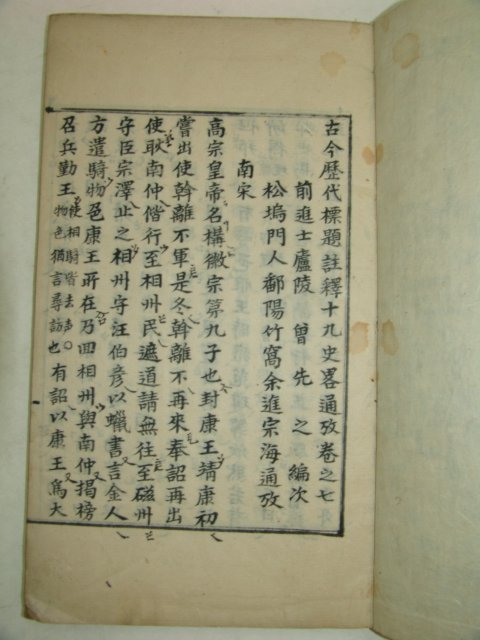 古今歷代標題註釋十九史畧通攷卷之七
前進士廬陵曾先之編次
松塢門人鄱陽竹窩余進宗海通攷
南宋
高宗皇帝名構徽宗第九子也封康王靖康初
嘗出使斡離不軍是冬斡離不再來奉詔再出
使耿南仲偕行至相州民遮道請無往至磁州
守臣宗澤止之相州守汪伯彦以蠟書言金人
方遣騎物色康王所在乃回相州與南仲揭榜
召兵勤王使相騎皆去聲○物色猶言尋訪也有詔以康王爲大